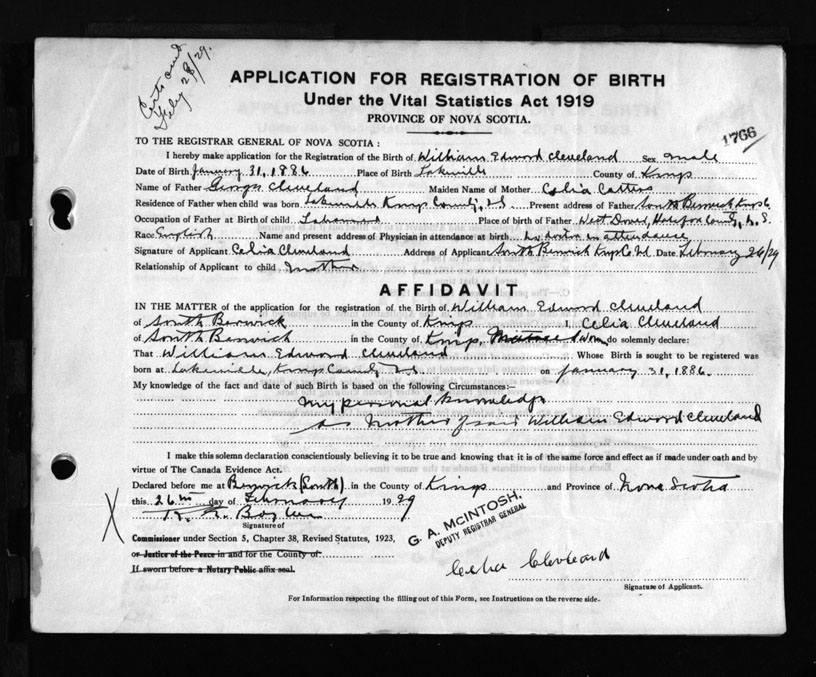 Certs and
Feby 28/29.
APPLICATION FOR REGISTRATION OF BIRTH
Under the Vital Statistics Act 1919
PROVINCE OF NOVA SCOTIA.
1766
TO THE REGISTRAR GENERAL OF NOVA SCOTIA :
I hereby make application for the Registration of the Birth of William Edword Cleveland Sex male
Date of Birth January 31, 1886 Place of Birth Lakeville County of Kings
Name of Father George Cleveland Maiden Name of Mother Celia
Residence of Father when child was born Lakeville Kings County, N.S. Present address of Father South Berwick Kings Co
Occupation of Father at Birth of child Labourer Place of birth of Father West Dover, Halifax County, N.S.
Race English Name and present address of Physician in attendance at birth No doctor in attendance
Signature of Applicant Celia Cleveland Address of Applicant South Berwick Kings Co NS Date February 26/29
Relationship of Applicant to child Mother
AFFIDAVIT
IN THE MATTER of the application for the registration of the Birth of William Edword Cleveland
of South Berwick in the County of Kings I, Celia Cleveland
of South Berwick in the County of Kings, do solemnly declare:
That William Edword Cleveland Whose Birth is sought to be registered was
born at Lakeville, Kings County N.S. on January 31, 1886.
My knowledge of the fact and date of such Birth is based on the following Circumstances:–
My personal knowledge
as Mother of said William Edword Cleveland
I make this solemn declaration conscientiously believing it to be true and knowing that it is of the same force and effect as if made under oath and by
virtue of The Canada Evidence Act.
Declared before me at Berwick (South) in the County of Kings and Province of Nova Scotia
this 26th day of February 1929
Signature of
Commissioner under Section 5, Chapter 38, Revised Statutes, 1923,
or Justice of the Peace in and for the County of
If sworn before a Notary Public affix seal.
G. A. McINTOSH,
DEPUTY REGISTRAR GENERAL
Celia Cleveland
Signature of Applicant.
For Information respecting the filling out of this Form, see Instructions on the reverse side.